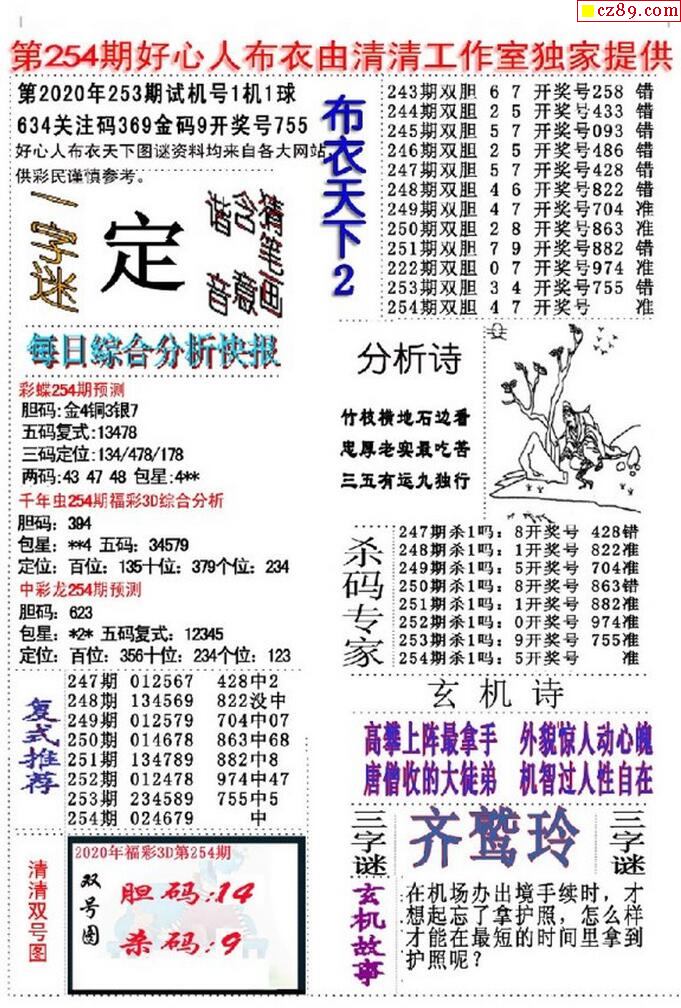 cz89.com
第254期好心人布衣由清清工作室独家提供
第2020年253期试机号1机1球
634关注码369金码9开奖号755
好心人布衣天下图谜资料均来自各大网站,
供彩民谨慎参考。
一字迷
定
谐音
含意
猪笔画
布衣天下2
243期双胆 6 7 开奖号258 错
244期双胆 2 5 开奖号433 错
245期双胆 5 7 开奖号093 错
246期双胆 2 5 开奖号486 错
247期双胆 5 7 开奖号428 错
248期双胆 4 6 开奖号822 错
249期双胆 4 7 开奖号704 准
250期双胆 2 8 开奖号863 准
251期双胆 7 9 开奖号882 错
222期双胆 0 7 开奖号974 准
253期双胆 3 4 开奖号755 错
254期双胆 4 7 开奖号 准
每日综合分析快报
彩蝶254期预测
胆码:金4铜3银7
五码复式:13478
三码定位:134/478/178
两码:43 47 48 包星:4**
千年虫254期福彩3D综合分析
胆码: 394
包星: **4 五码: 34579
定位: 百位: 135十位: 379个位: 234
中彩龙254期预测
胆码: 623
包星: *2* 五码复式: 12345
定位: 百位: 356十位: 234个位: 123
分析诗
竹枝横地石边看
忠厚老实最吃苦
三五有运九独行
杀码专家
247期杀1吗: 8开奖号 428错
248期杀1吗: 1开奖号 822准
249期杀1吗: 5开奖号 704准
250期杀1吗: 8开奖号 863错
251期杀1吗: 1开奖号 882准
252期杀1吗: 0开奖号 974准
253期杀1吗: 9开奖号 755准
254期杀1吗: 5开奖号 准
复式推荐
247期 012567 428中2
248期 134569 822没中
249期 012579 704中07
250期 014678 863中68
251期 134789 882中8
252期 012478 974中47
253期 234589 755中5
254期 024679 中
玄机诗
高攀上阵最拿手 外貌惊人动心魄
唐僧收的大徒弟 机智过人性自在
三字谜
齐鹫玲
三字谜
清清双号图
2020年福彩3D第254期
双号图
胆码:14
杀码:9
玄机故事
在机场办出境手续时,才
想起忘了拿护照,怎么样
才能在最短的时间里拿到
护照呢?